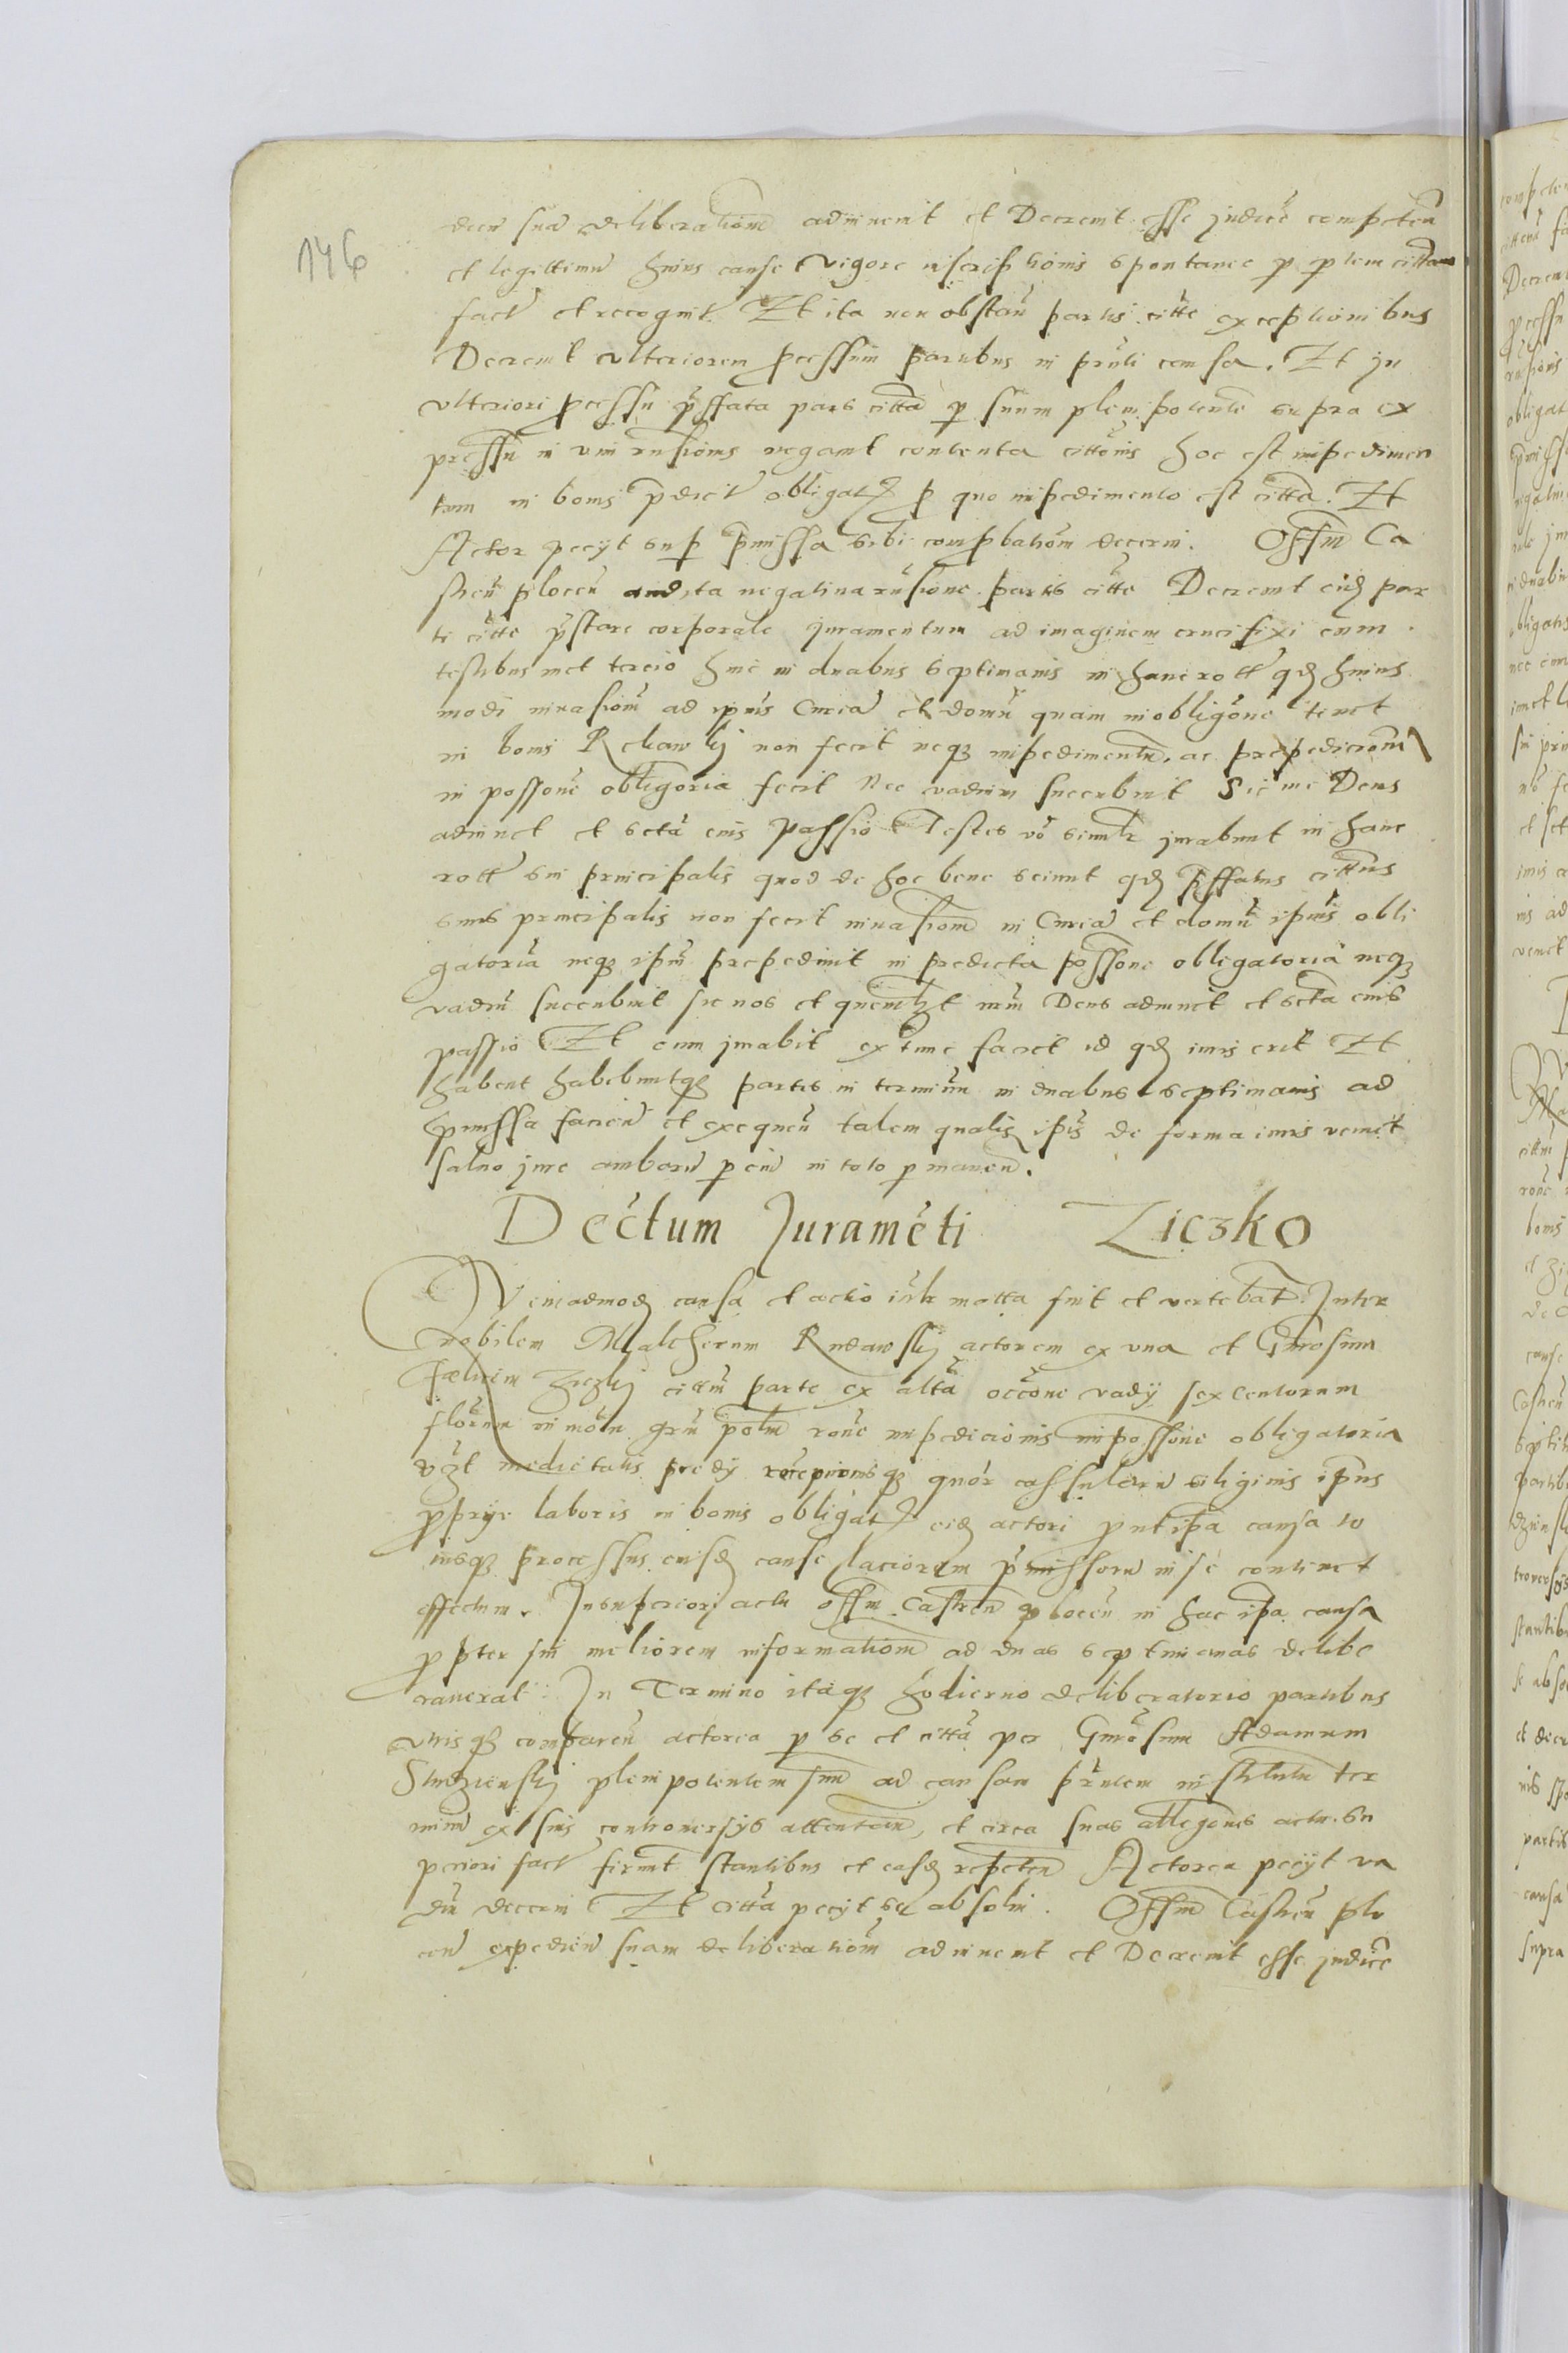 146
dien̄ suā deliberationē adinuenit et Decreuit esse judicē competen̄
et legittimū huius cause vigore inscriptionis spontanee p̱ p̱tem cittam
fact̄ et recognit̄. Et ita non obstan̄ partis citte exceptionibus
Decreuit vlteriorem p̱cessum partibus in pn̄ti causa. Et in
vlteriori p̱cessu p̄ffata pars citta p̱ suum plenipotentē supra ex
pressū in vim rn̄sionis negauit contenta cittōnis hoc est impedimen
tum in bonis p̄dict̄ obligat̄ p̱ quo impedimento est citta. Et
Actor peciit sup̱ p̄missa sibi comp̱bationē decerni. Offm̄ Ca
stren̄ plocen̄ audita negatiua rn̄sione partis citte Decreuit eidē par
ti citte p̄stare corporale iuramentum ad imaginem crucifixi cum
testibus met tercio hinc in duabus septimanis in hanc rott̄ qd̄ huius
modi inuasionē ad ip̄ius Curiā et domū quam in obligōne tenet
in bonis non fecit neq̧ impedimentū, ac prepedicionē
in possone obligōria fecit Nec vadium succubuit Sic me Deus
adiuuet et sctā eius Passio Testes vō simlr iurabunt in hanc
rott̄ sui principalis quod de hoc bene sciunt qd̄ p̄ffatus cittus
suus principalis non fecit inuasionē in Curiā et domū ip̄ius obli
gatoriā neq̧ ip̄m prepediuit in predicta possone obligatoria neq̧
vadiū succubuit sic nos et quemlꝫt nrm̄ Deus adiuuet et scta eius
passio Et cum iurabit extunc faciet id qd̄ iuris erit Et
habent habebuntq̧ partes in terminū in duabus septimanis ad
p̄missa facien̄ et exequen̄ talem qualis ip̄is de forma iuris venit
saluo jure amborū parciū in toto p̱manen̄.
Decr̄tum Juramēti Ziczko
Quemadmodū causa et actio iuste motta fuit et vertebat̄ Inter
nobilem Malcherum Rudawskij actorem ex vna et Gn̄rosum
Fœlicem Ziczkij cittum parte ex altā occōne vadij sexcentorum
florenū in mōta grū pol̄n̄ ronē impedicionis in possone obligatoria
vꝫt medietatis predij recepcionisq̧ qn̄or cassularū siliginis ip̄ius
p̱prije laboris in bonis obligat̄ eidē actori put ip̄a causa to
tiusq̧ processus eiusdē cause laciorem p̄missorū in se continet
effectum. In superiori actu offm̄ Castren̄ plocen̄ in hac ip̄a causa
p̱pter sui meliorem informationē ad duas septimanas delibe
rauerat. In Termino itaq̧ hodierno deliberatorio partibus
vtrisq̧ comparen̄ actorea p̱ se et cittā per Gn̄rosum Adamum
plenipotentem suū ad causam pn̄tem institutū ter
minū ex suis controuersijs attentan̄, et circa suas allegōnes actu su
periori fact̄ firmit̄ stantibus et easdē repeten̄ Actorea peciit va
diū decerni Et citta peciit se absolui. Offm̄ Castren̄ plo
cen̄ expedien̄ suam deliberationē adinuenit et Decreuit esse judicē